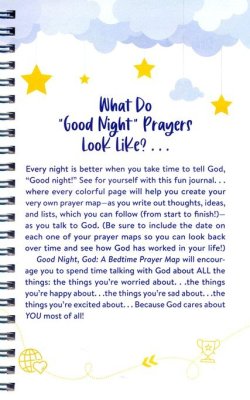 What Do
"Good Night" Prayers
Look Like? . . .
Every night is better when you take time to tell God,
"Good night!" See for yourself with this fun journal. . .
where every colorful page will help you create your
very own prayer map—as you write out thoughts, ideas,
and lists, which you can follow (from start to finish!)—
as you talk to God. (Be sure to include the date on
each one of your prayer maps so you can look back
over time and see how God has worked in your life!)
Good Night, God: A Bedtime Prayer Map will encour-
age you to spend time talking with God about ALL the
things: the things you're worried about. . .the things
you're happy about. . .the things you're sad about. . .the
things you're excited about. . . Because God cares about
YOU most of all!